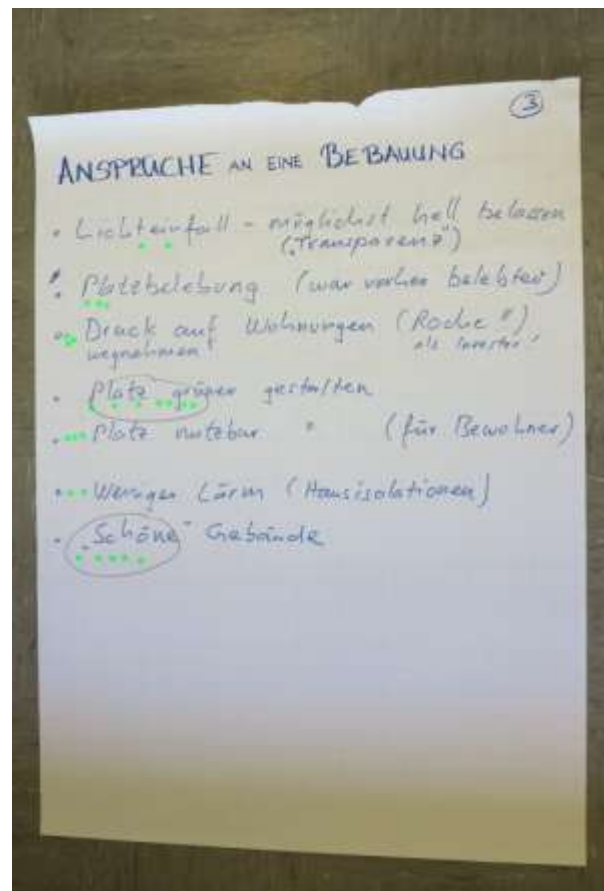 ③
ANSPRÜCHE AN EINE BEBAUUNG
• Lichteinfall - möglichst hell belassen
("Transparenz")
! Platzbelebung (war vorher belebter)
• Druck auf Wohnungen (Roche ")
wegnehmen als Investor
• Platz grüner gestalten
• Platz nutzbar " (für Bewohner)
• Weniger Lärm (Hausisolationen)
• "Schöne" Gebäude